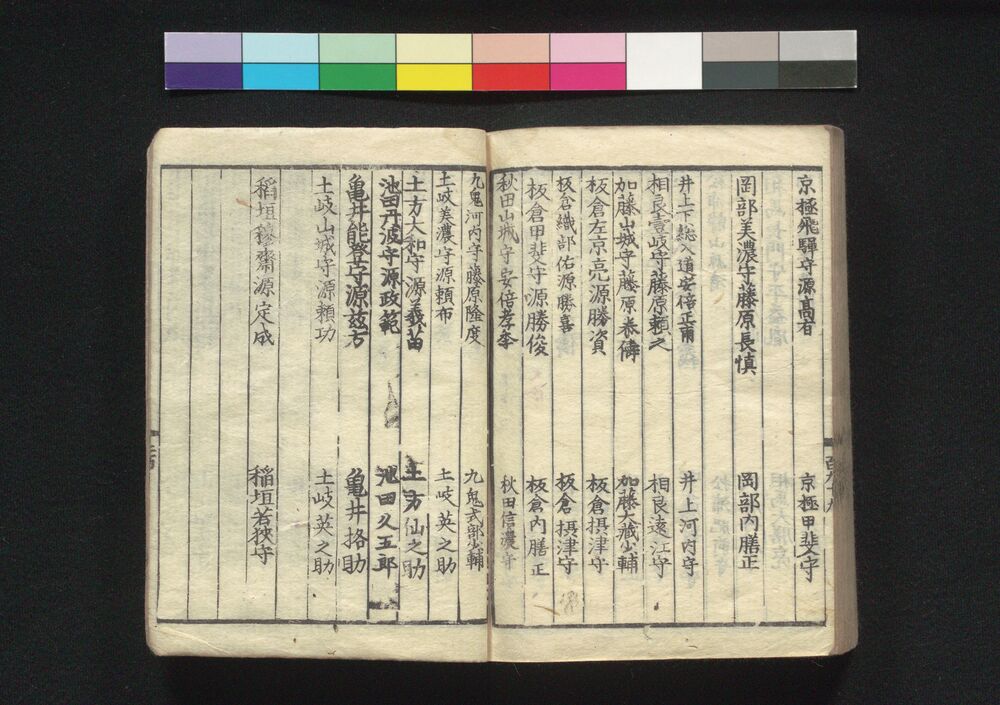 京極飛騨守源高有 京極甲斐守
岡部美濃守藤原長慎 岡部内膳正
井上下総入道安倍正甫 井上河内守
相良壹岐守藤原頼之 相良遠江守
加藤山城守藤原泰儔 加藤大蔵少輔
板倉左京亮源勝資 板倉摂津守
板倉織部佑源勝喜 板倉摂津守
板倉甲斐守源勝俊 板倉内膳正
秋田山城守安倍孝季 秋田信濃守
九鬼河内守藤原隆度 九鬼式部少輔
土岐美濃守源頼布 土岐英之助
土方大和守源義苗 土方仙之助
池田丹波守源政範 池田久五郎
亀井能登守源茲方 亀井格助
土岐山城守源頼功 土岐英之助
稲垣穆齋源定成 稲垣若狭守